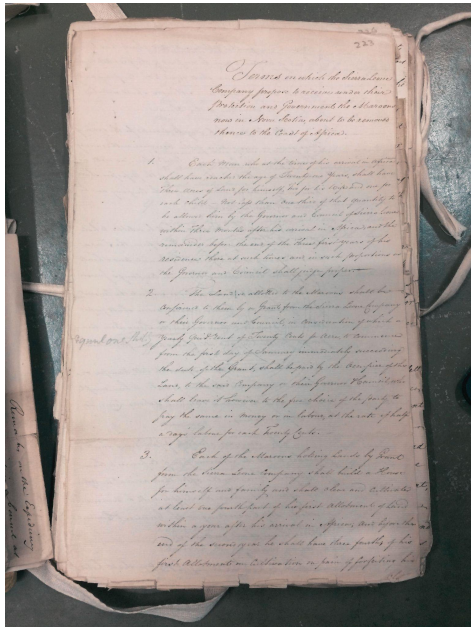 223
Terms on which the Sierra Leone
Company propose to receive under their
Protection and Government the Maroons
now in Nova Scotia about to be removed
thence to the Coast of Africa.
1. Each man who at the time of his arrival in Africa
shall have reached the age of Twenty one years shall have
Three acres of Land for himself, for his wife and one for
each child. Not less than one third of that quantity to
be allotted him by the Governor and Council of Sierra Leone
within Three Months after his arrival in Africa and the
remainder before the end of the Three first years of his
residence there at such times and in such proportions as
the Governor and Council shall judge proper
2. The Lands allotted to the Maroons shall be
confirmed to them by a Grant from the Sierra Leone Company
or their Governor and Council, in consideration of which a
yearly Quit Rent of Twenty Cents per Acre to commence
from the first day of January immediately succeeding
the date of the Grant, shall be paid by the occupier of the
Land, to the said Company or their Governor & Council, who
shall leave it however to the free choice of the party to
pay the same in money or in labour, at the rate of half
a days labour for each Twenty Cents.
3. Each of the Maroons holding Lands by Grant
from the Sierra Leone Company shall build a House
for himself and family and shall clear and cultivate
at least one fourth part of his first allotment of Land
within a year after his arrival in Africa, and before the
end of the second year he shall have three fourths of his
first allotment in Cultivation on pain of forfeiting his